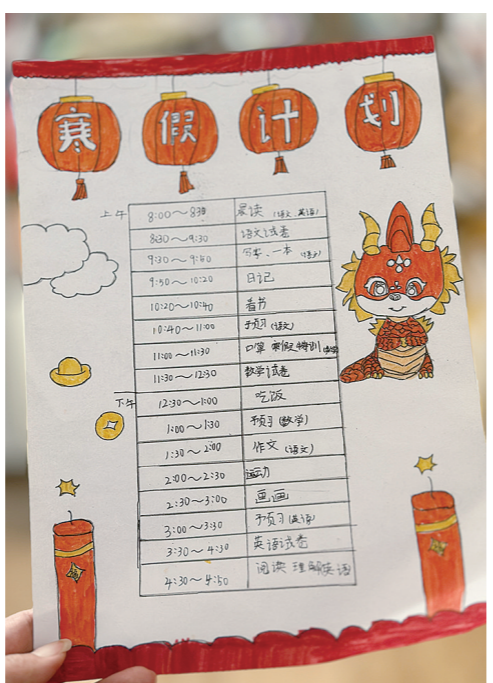 寒假计划
上午
8:00~8:30 晨读 (语文、英语)
8:30~9:30 语文试卷
9:30~9:40 写字、一本 (语文)
9:50~10:20 日记
10:20~10:40 看书
10:40~11:00 预习 (语文)
11:00~11:30 口算 寒假特训
11:30~12:30 数学试卷
下午
12:30~1:00 吃饭
1:00~1:30 预习 (数学)
1:30~2:00 作文 (语文)
2:00~2:30 运动
2:30~3:00 画画
3:00~3:30 预习 (英语)
3:30~4:30 英语试卷
4:30~4:50 阅读理解英语